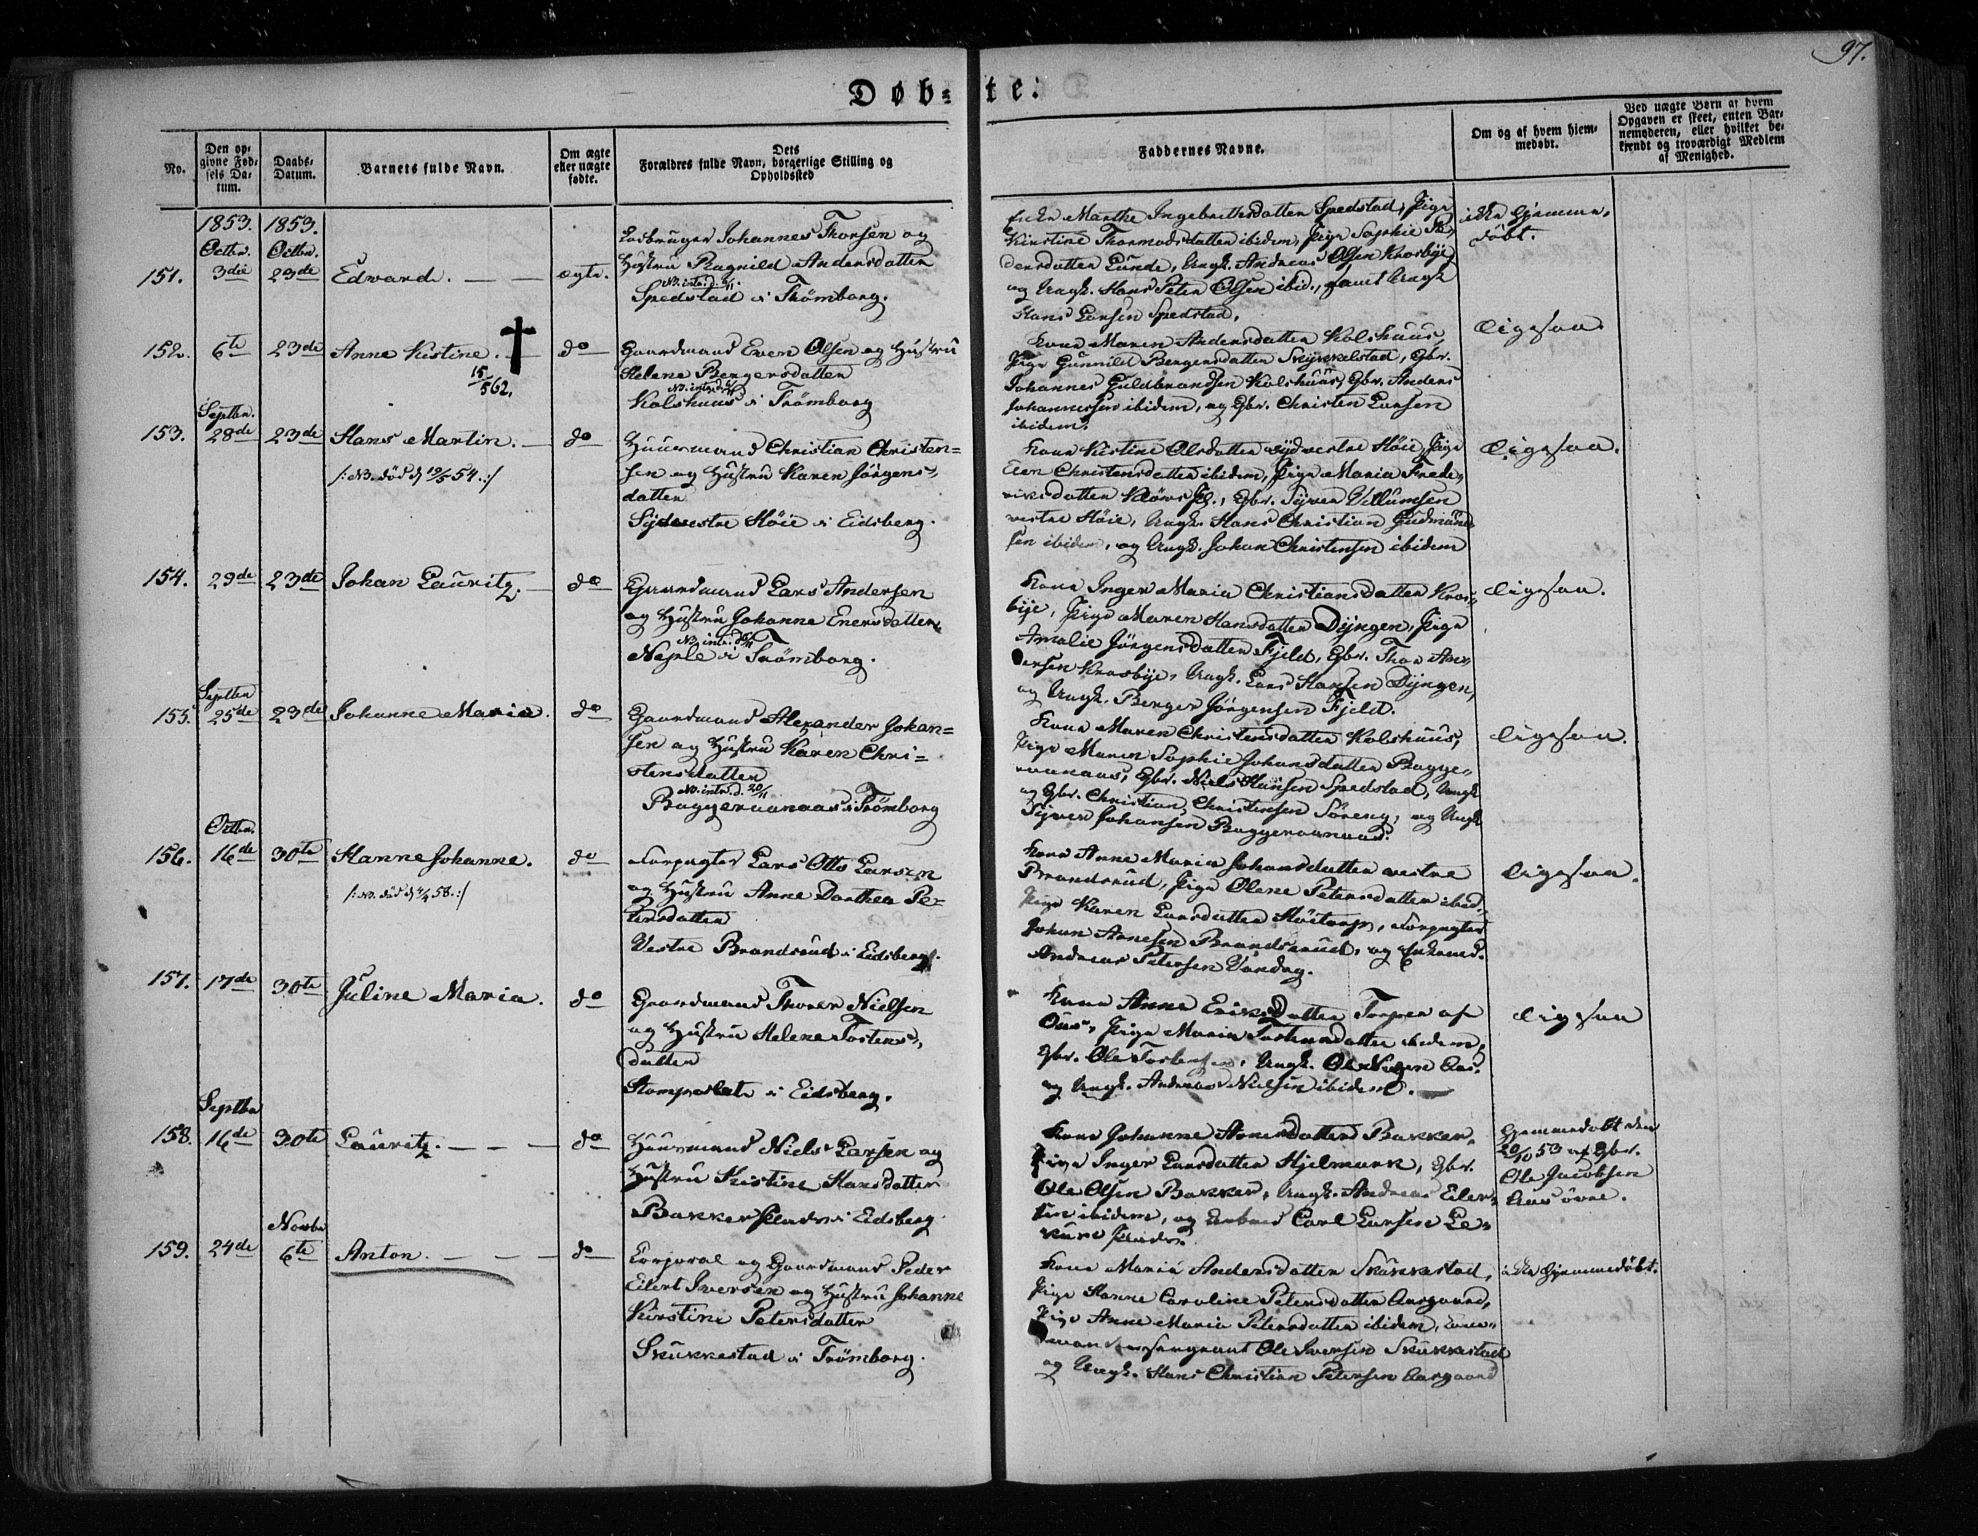 97.
Døb-te:
No.
Den op-
givne Fød-
sels Da-
tum.
Daabs-
Datum.
Barnets fulde Navn.
Om ægte
eller uægte
fødte.
Dets
Forældres fulde Navn, borgerlige Stilling og
Opholdssted
Faddernes Navne.
Om og af hvem hjem-
medøbt.
Ved uægte Børn af hvem
Opgaven er skeet, enten Bar-
nemoderen, eller hvilket be-
kjendt og troværdigt Medlem
af Menighed.
1853. 1853.
Octbr. Octbr.
151. 3die 23de Edward. ægte.
Johannes Thorsen og
Hustru Ragnild Andersdatter
NB. intr. d. 6/11.
Spedstad i Trømborg.
Enke Marthe Ingebrethsdatter Spedstad, Pige
Kirstine Thormodsdatter ibidem, Pige Sophie Pe-
dersdatter Lunde, Ungk. Andreas Olsen Krosbye,
og Ungk. Hans Peter Olsen ibid., samt Ungk
Hans Larsen Spedstad.
ikke hjemme-
døbt.
152. 6te 23de Anne Kistine. do
15/562.
Gaardmand Even Olsen og Hustru
Helene Bergersdatter
NB. intr. d.
Kolshuus i Trømborg
Kone Maren Andersdatter Kolshuus,
Pige Gunnild Bergersdatter Skjykkelstad, Gbr.
Johannes Guldbrandsen Kolshuus, Gbr. Anders
Johannessen ibidem, og Gbr. Christen Larsen
ibidem.
Ligesaa.
Septbr.
153. 28de 23de Hans Martin. do
/: NB. død d 19/5 54. :/
Huusmand Christian Christen-
sen og Hustru Karen Jørgens-
datter
Sydvestre Høie i Eidsberg.
Kone Kistine Olsdatter Sydvestre Høie, Pige
Christensdatter ibidem, Pige Maria Frede-
riksdatter Pl., Gbr. Syver Villumsen
vestre Høie, Ungk. Hans Christian Gudmund-
sen ibidem, og Ungk. Johan Christensen ibidem
Ligesaa.
154. 29de 23de Johan Lauritz. do
Gaardmand Lars Andersen
og Hustru Johanne Enersdatter
NB. intr. d.
Neple i Trømborg.
Kone Inger Maria Christiansdatter Kros-
bye, Pige Maren Hansdatter Dyngen, Pige
Amalie Jørgensdatter Fjeld, Gbr. Thor An-
dersen Krosbye, Ungk. Lars Hansen Dyngen,
og Ungk. Berger Jørgensen Fjeld.
Ligesaa.
Septbr
155. 25de 23de Johanne Maria. do
Gaardmand Alexander Johan-
sen og Hustru Karen Chri-
stensdatter
NB. intr. d. 20/11
Baggeraanaas i Trømborg
Kone Maren Christensdatter Kolshuus,
Pige Maren Sophie Johansdatter Bagge-
raanaas, Gbr. Niels Hansen Spedstad, Ungk
og Gbr. Christian Christensen Søreng, og Ungk
Syver Johansen Baggeraanaas.
Ligesaa.
Octbr.
156. 16de 30te Hanne Johanne. do
/: NB. død d 4/4 58. :/
Forpagter Lars Otto Larsen
og Hustru Anne Dorthea Pe-
tersdatter
Vestre Brandsrud i Eidsberg.
Kone Anne Maria Johansdatter vestre
Brandsrud, Pige Olene Petersdatter ibid.,
Pige Karen Larsdatter Høitorp, Forpagter
Johan Arnesen Brandsrud, og Enkemd.
Andreas Petersen Vandag.
Ligesaa.
157. 17de 30te Juline Maria. do
Gaardmand Thorer Nielsen
og Hustru Helene Tostens-
datter
i Eidsberg.
Kone Anne Eriksdatter Torper af
Pige Maria Tostensdatter ibidem,
Gbr. Ole Tostensen, Ungk. Ole Nielsen Aas.
og Ungk. Andreas Nielsen ibidem.
Ligesaa
Septbr
158. 16de 30te Lauritz. do
Huusmand Niels Larsen og
Hustru Kistine Hansdatter
Bakker Pladsen i Eidsberg.
Kone Johanne Arnesdatter Bakker,
Pige Inger Larsdatter Hjelmark, Gbr.
Ole Olsen Bakker, Ungk. Andreas Eiler-
sen ibidem, og Carl Larsen Le-
kure Pladsen.
Hjemmedøbt den
20/10 53 af Gbr.
Ole Jacobsen
Aas øvre.
Novbr
159. 24de 6te Anton. do
Corporal og Gaardmand Peder
Eilert Iversen og Hustru Johanne
Kirstine Petersdatter
Skukkestad i Trømborg.
Kone Maria Andersdatter Skukkestad,
Pige Hanne Caroline Petersdatter Aasgaard,
Pige Anne Maria Petersdatter ibidem,
sergeant Ole Iversen Skukkestad
og Ungk. Hans Christian Petersen Aasgaard
ikke hjemmedøbt.